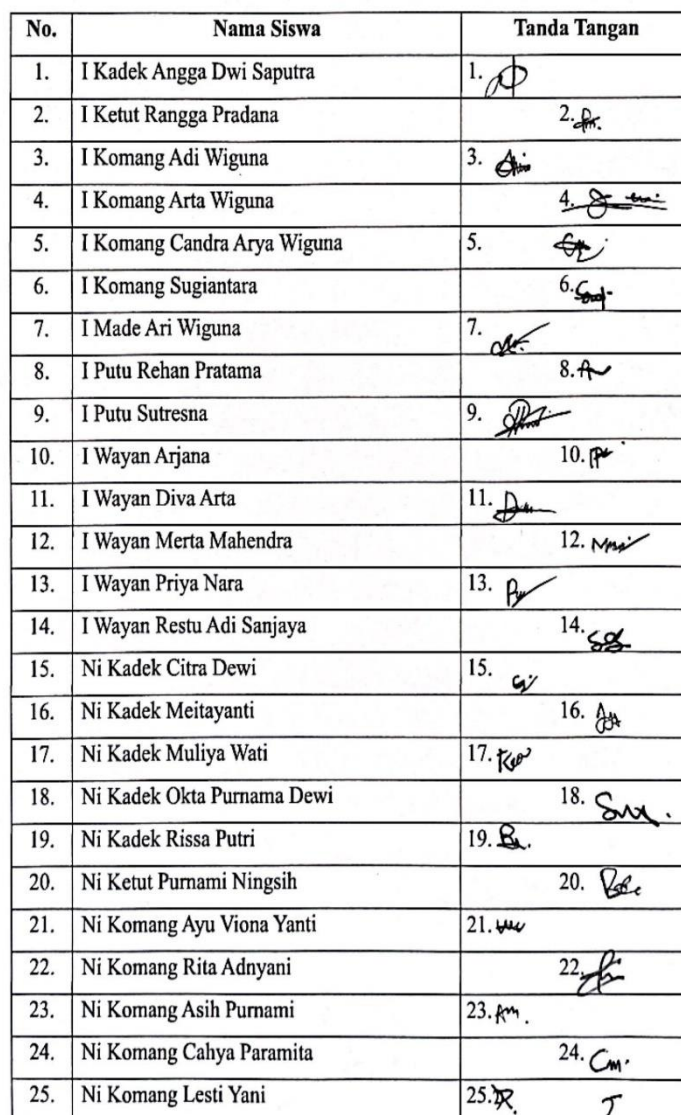 No. Nama Siswa Tanda Tangan
1. I Kadek Angga Dwi Saputra 1.
2. I Ketut Rangga Pradana 2.
3. I Komang Adi Wiguna 3.
4. I Komang Arta Wiguna 4.
5. I Komang Candra Arya Wiguna 5.
6. I Komang Sugiantara 6.
7. I Made Ari Wiguna 7.
8. I Putu Rehan Pratama 8.
9. I Putu Sutresna 9.
10. I Wayan Arjana 10.
11. I Wayan Diva Arta 11.
12. I Wayan Merta Mahendra 12.
13. I Wayan Priya Nara 13.
14. I Wayan Restu Adi Sanjaya 14.
15. Ni Kadek Citra Dewi 15.
16. Ni Kadek Meitayanti 16.
17. Ni Kadek Muliya Wati 17.
18. Ni Kadek Okta Purnama Dewi 18.
19. Ni Kadek Rissa Putri 19.
20. Ni Ketut Purnami Ningsih 20.
21. Ni Komang Ayu Viona Yanti 21.
22. Ni Komang Rita Adnyani 22.
23. Ni Komang Asih Purnami 23.
24. Ni Komang Cahya Paramita 24.
25. Ni Komang Lesti Yani 25.